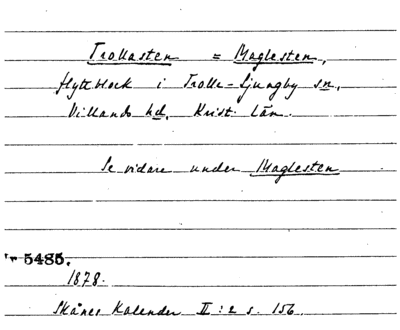 Trollasten = Maglesten,
flyttblock i Trolle-Ljungby sn,
Villands hd, Krist. län.
Se vidare under Maglesten
5485.
1878.
Skånes Kalender II:2 s. 156.